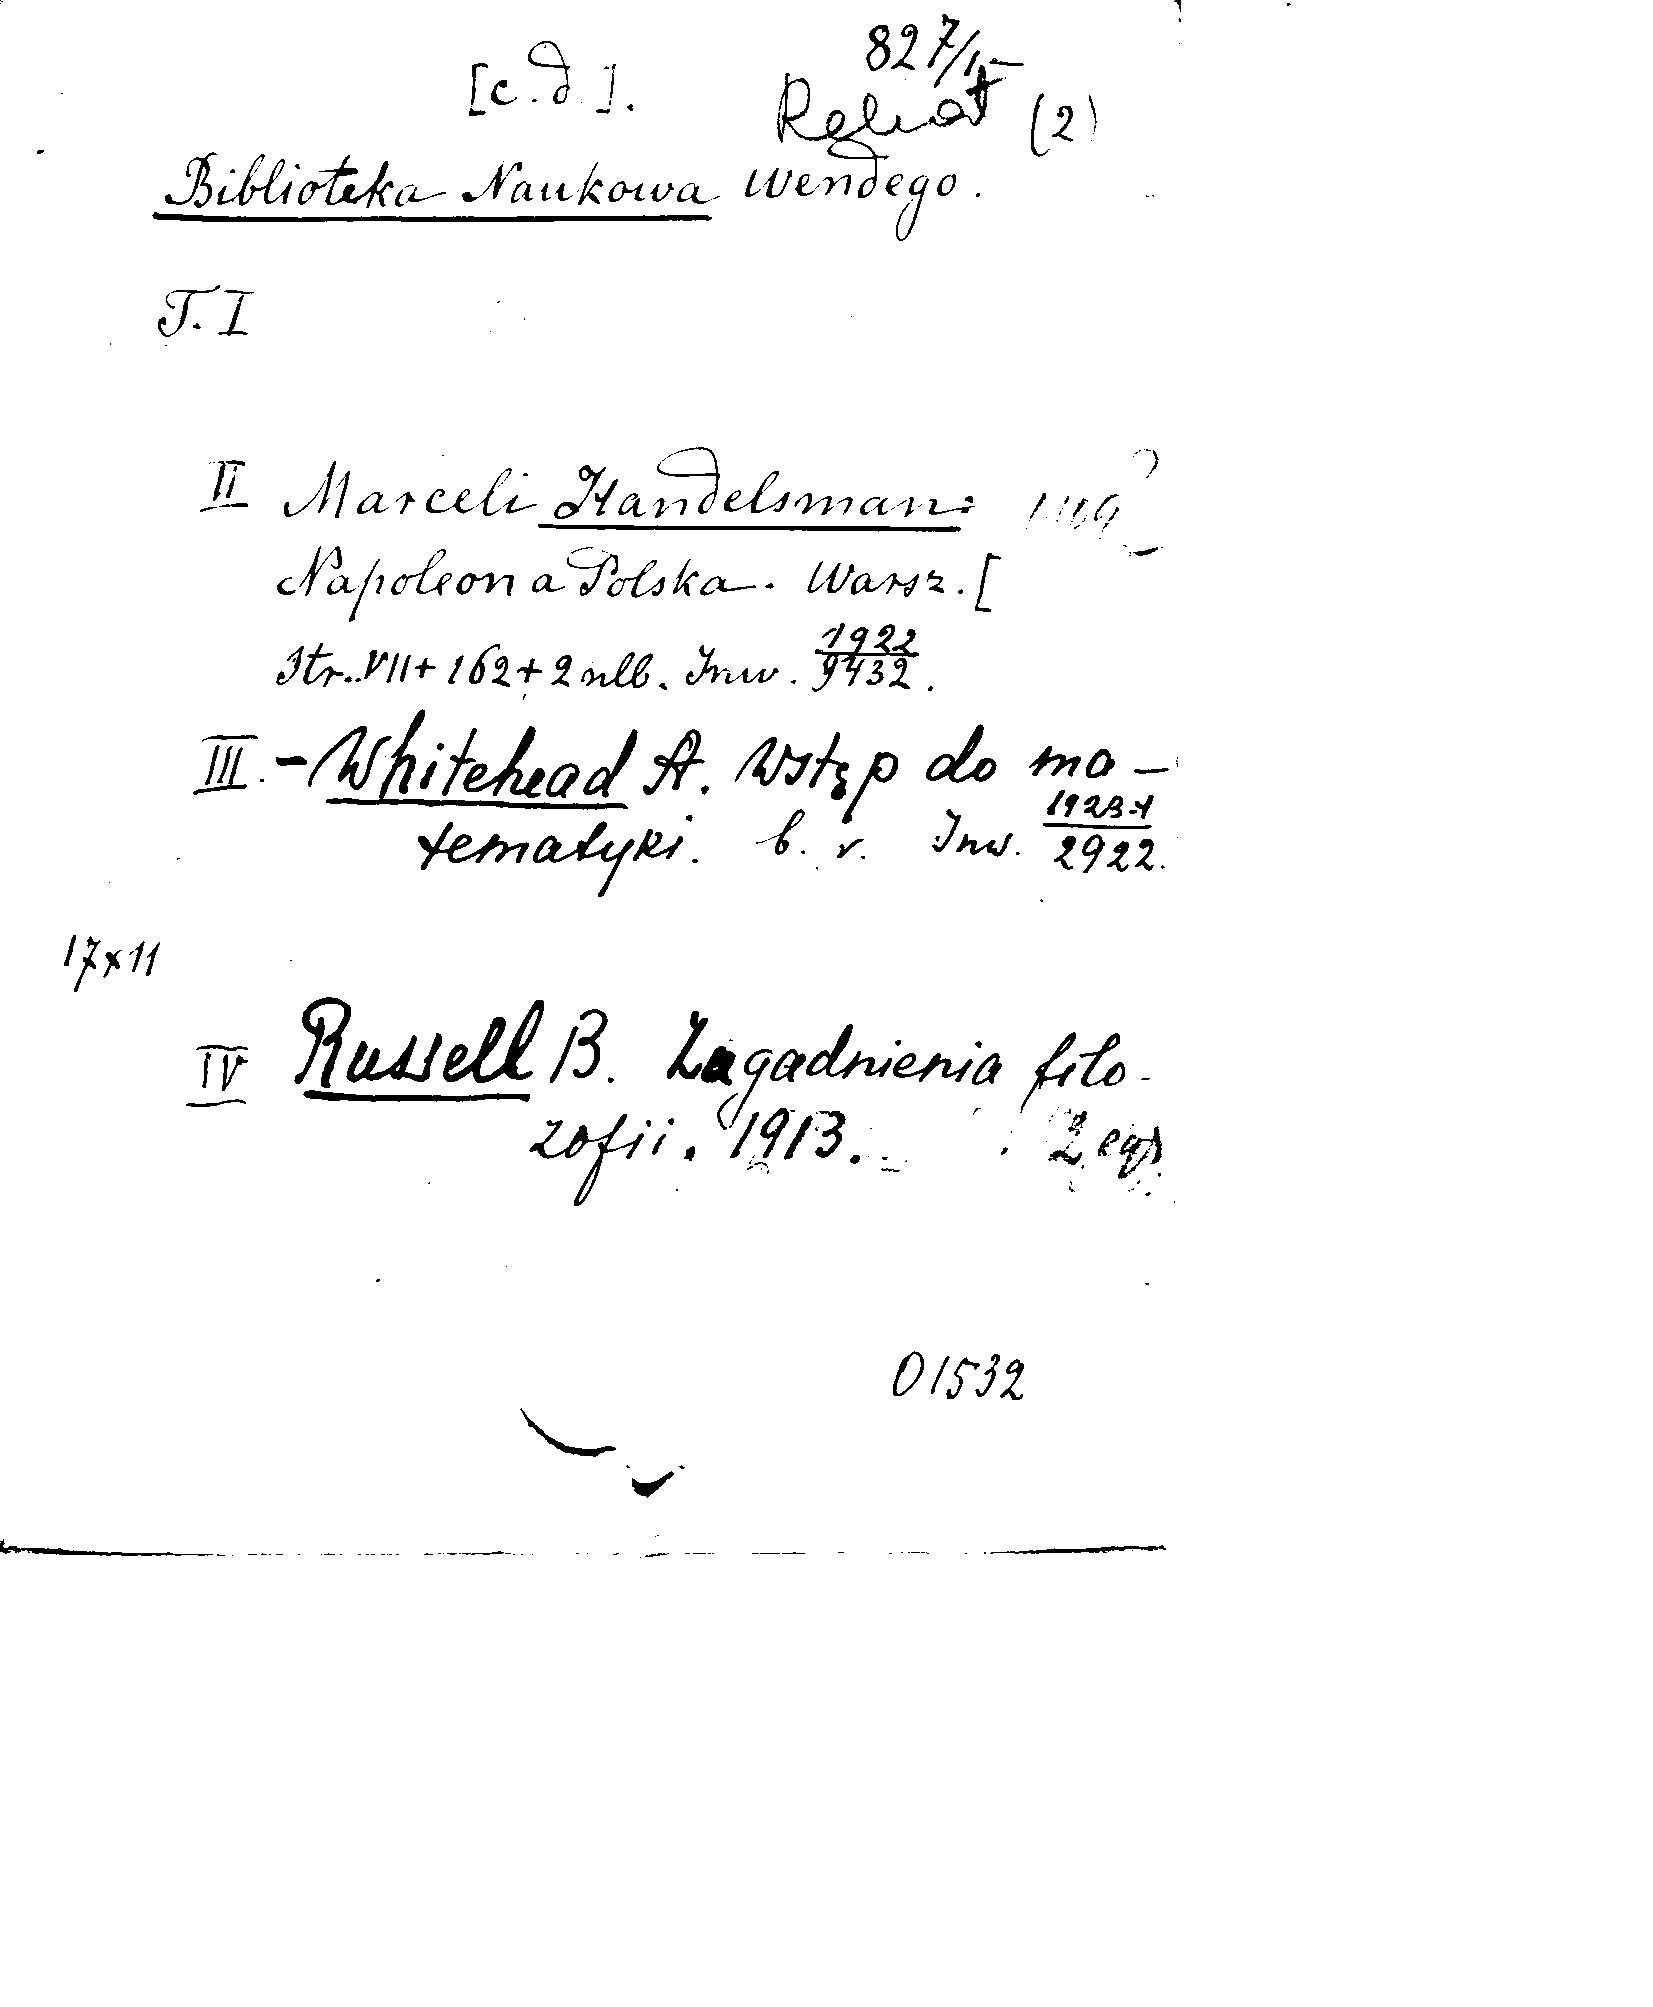 827/II
[c.d.].
(2)
Biblioteka Naukowa Wendego.
T. I
II Marceli Handelsman:
Napoleon a Polska. Warsz. [
Str. VII+162+2 nlb. Inw. 1922/9432.
III. - Whitehead A. Wstęp do ma-
tematyki. b. r. Inw. 1923-4/2922.
17x11
IV Russell B. Zagadnienia filo-
zofii. 1913. 2 egz.
01532